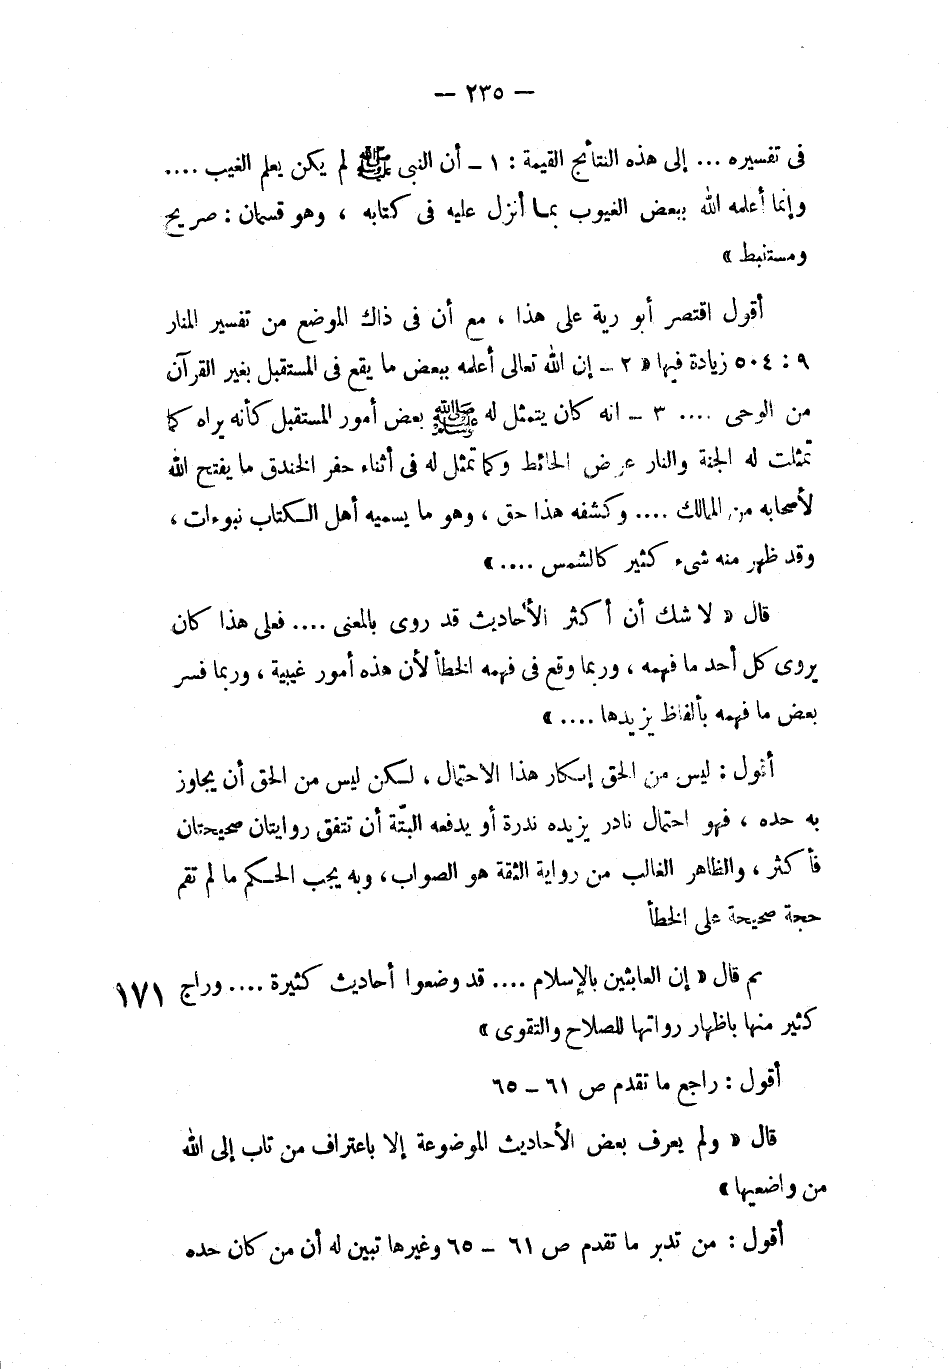 — ٢٣٥ —
فى تفسيره ... إلى هذه النتائج القيمة : ١ ـ أن النبى ﷺ لم يكن يعلم الغيب ....
وإنما أعلمه الله ببعض الغيوب بما أنزل عليه فى كتابه ، وهو قسمان : صريح
ومستنبط »
أقول اقتصر أبو رية على هذا ، مع أن فى ذاك الموضع من تفسير المنار
٩ : ٥٠٤ زيادة فيها « ٢ ـ إن الله تعالى أعلمه ببعض ما يقع فى المستقبل بغير القرآن
من الوحى .... ٣ ـ انه كان يتمثل له ﷺ بعض أمور المستقبل كأنه يراه كما
تمثلت له الجنة والنار عرض الحائط وكما تمثل له فى أثناء حفر الخندق ما يفتح الله
لأصحابه من الممالك .... وكشفه هذا حق ، وهو ما يسميه أهل الكتاب نبوءات ،
وقد ظهر منه شىء كثير كالشمس .... »
قال « لا شك أن أكثر الأحاديث قد روى بالمعنى .... فعلى هذا كان
يروى كل أحد ما فهمه ، وربما وقع فى فهمه الخطأ لأن هذه أمور غيبية ، وربما فسر
بعض ما فهمه بألفاظ يزيدها .... »
أقول : ليس من الحق إنكار هذا الاحتمال ، لكن ليس من الحق أن يجاوز
به حده ، فهو احتمال نادر يزيده ندرة أو يدفعه البتّة أن تتفق روايتان صحيحتان
فأكثر ، والظاهر الغالب من رواية الثقة هو الصواب ، وبه يجب الحكم ما لم تقم
حجة صحيحة على الخطأ
ثم قال « إن العابثين بالإسلام .... قد وضعوا أحاديث كثيرة .... وراج ١٧١
كثير منها باظهار رواتها للصلاح والتقوى »
أقول : راجع ما تقدم ص ٦١ ـ ٦٥
قال « ولم يعرف بعض الأحاديث الموضوعة إلا باعتراف من تاب إلى الله
من واضعيها »
أقول : من تدبر ما تقدم ص ٦١ ـ ٦٥ وغيرها تبين له أن من كان حده